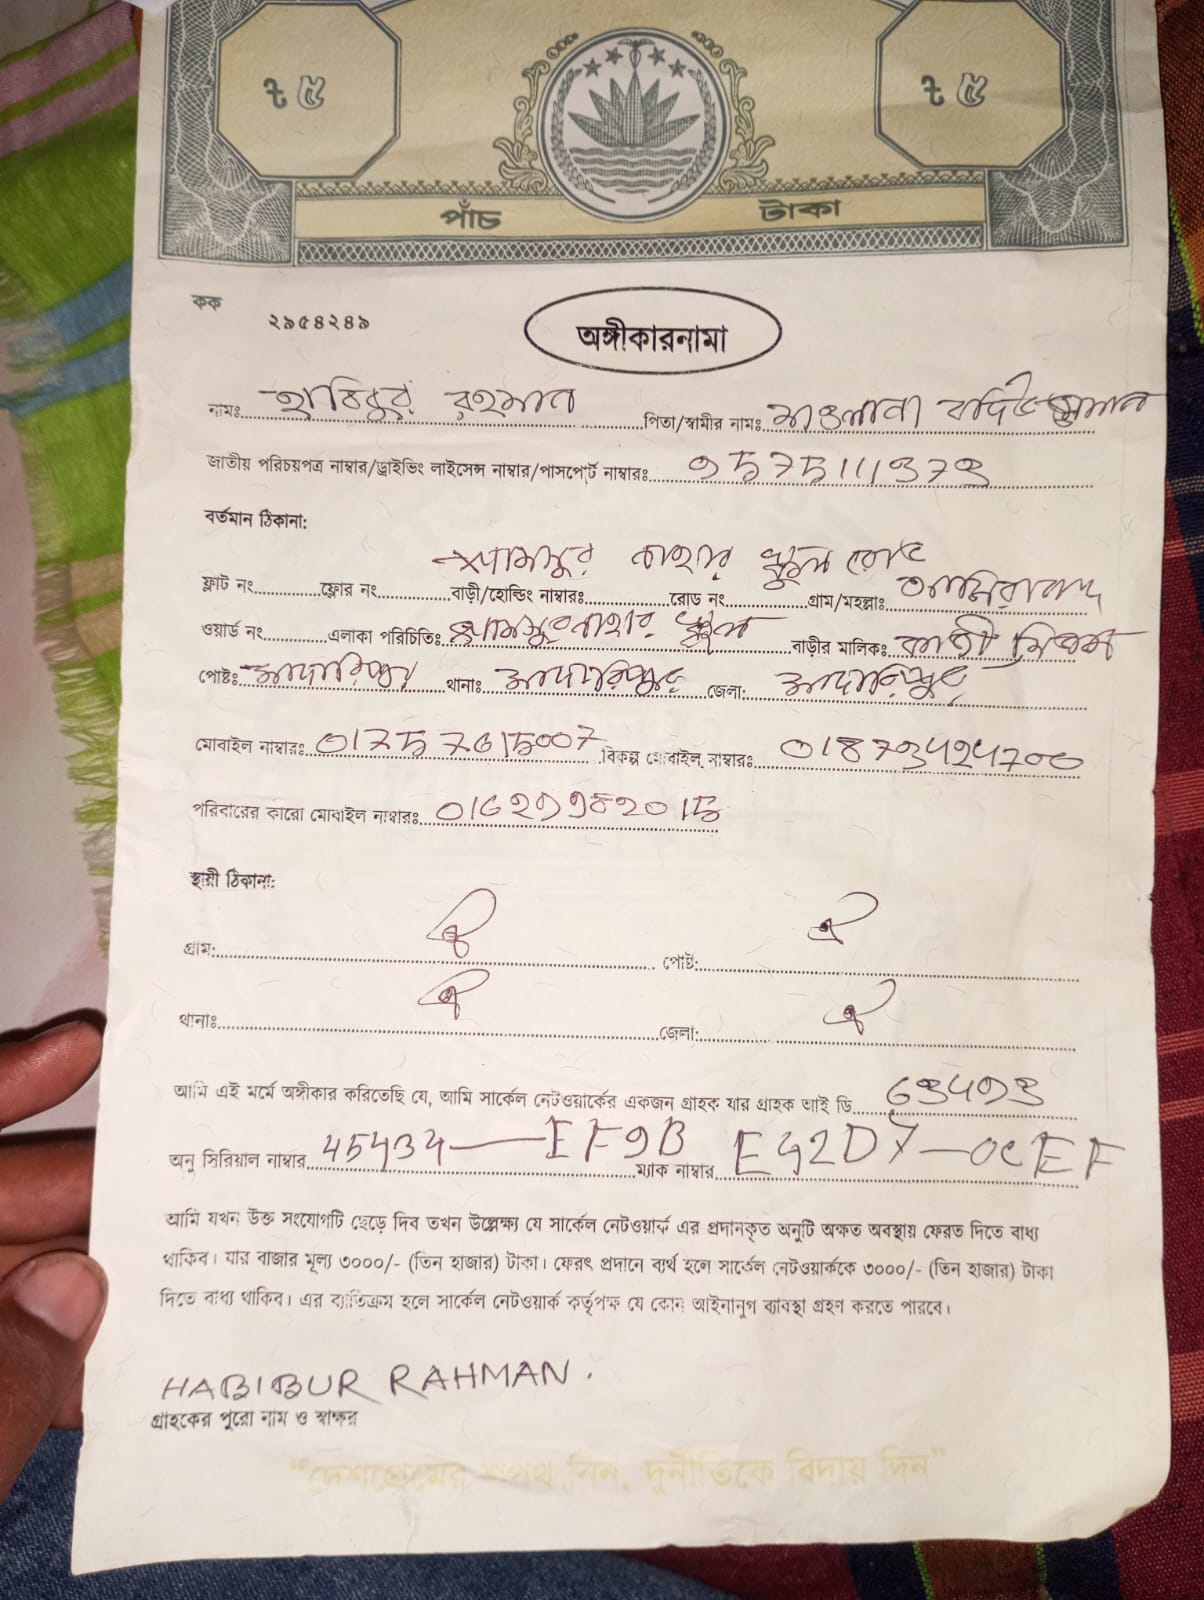 ৳ ৫ ৳ ৫
পাঁচ টাকা
কক
২৯৫৪২৪৯
অঙ্গীকারনামা
নামঃ হাবিবুর রহমান পিতা/স্বামীর নামঃ মাওলানা
জাতীয় পরিচয়পত্র নাম্বার/ড্রাইভিং লাইসেন্স নাম্বার/পাসপোর্ট নাম্বারঃ
বর্তমান ঠিকানা:
স্কুল রোড
ফ্লাট নং ফ্লোর নং বাড়ী/হোল্ডিং নাম্বারঃ রোড নং গ্রাম/মহল্লাঃ আমিরাবাদ
ওয়ার্ড নং এলাকা পরিচিতিঃ স্কুল বাড়ীর মালিকঃ কাজী
পোষ্টঃ মাদারিপুর থানাঃ মাদারিপুর জেলা: মাদারিপুর
মোবাইল নাম্বারঃ বিকল্প মোবাইল নাম্বারঃ
পরিবারের কারো মোবাইল নাম্বারঃ
স্থায়ী ঠিকানা:
গ্রাম: ঐ পোষ্ট: ঐ
থানাঃ ঐ জেলা: ঐ
আমি এই মর্মে অঙ্গীকার করিতেছি যে, আমি সার্কেল নেটওয়ার্কের একজন গ্রাহক যার গ্রাহক আই ডি
অনু সিরিয়াল নাম্বার ম্যাক নাম্বার
আমি যখন উক্ত সংযোগটি ছেড়ে দিব তখন উল্লেক্ষ্য যে সার্কেল নেটওয়ার্ক এর প্রদানকৃত অনুটি অক্ষত অবস্থায় ফেরত দিতে বাধ্য
থাকিব। যার বাজার মূল্য ৩০০০/- (তিন হাজার) টাকা। ফেরৎ প্রদানে ব্যর্থ হলে সার্কেল নেটওয়ার্ককে ৩০০০/- (তিন হাজার) টাকা
দিতে বাধ্য থাকিব। এর ব্যতিক্রম হলে সার্কেল নেটওয়ার্ক কর্তৃপক্ষ যে কোন আইনানুগ ব্যাবস্থা গ্রহণ করতে পারবে।
HABIBUR RAHMAN.
গ্রাহকের পুরো নাম ও স্বাক্ষর
"দেশপ্রেমের শপথ নিন, দুর্নীতিকে বিদায় দিন"